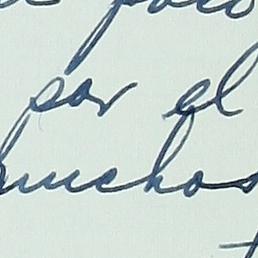 poco
por el
muchos